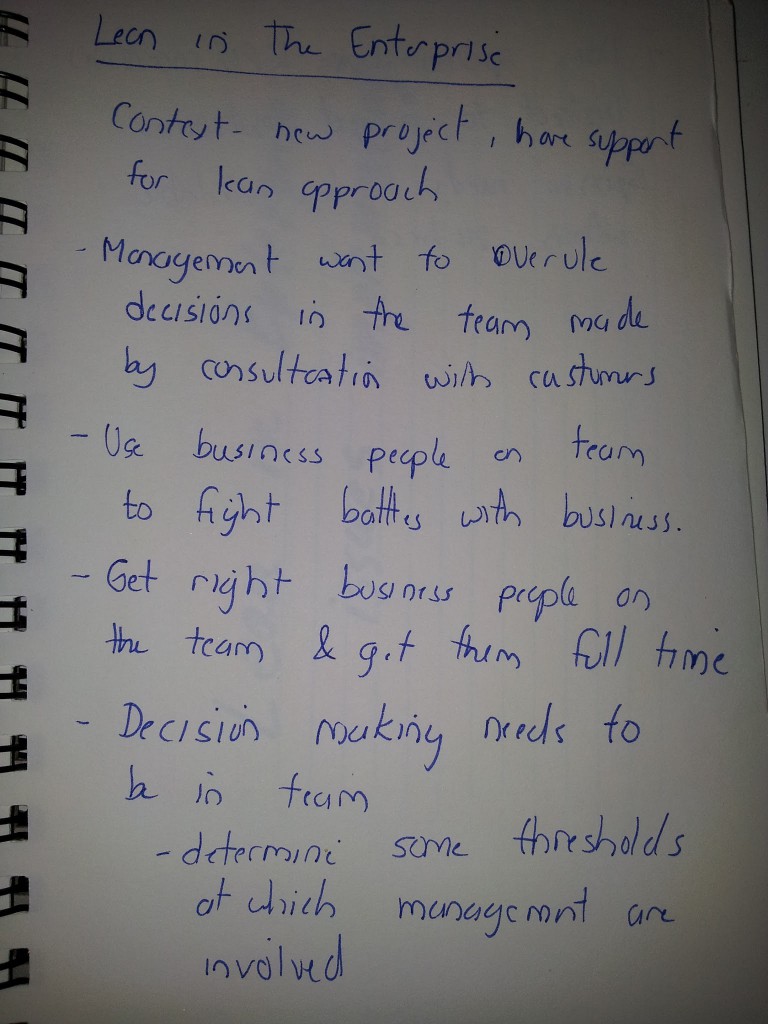 Lean in The Enterprise
Context - new project, have support
for lean approach
- Management want to overule
decisions in the team made
by consultcation with customers
- Use business people on team
to fight battles with business.
- Get right business people on
the team & get them full time
- Decision making needs to
be in team
- determine some thresholds
at which management are
involved